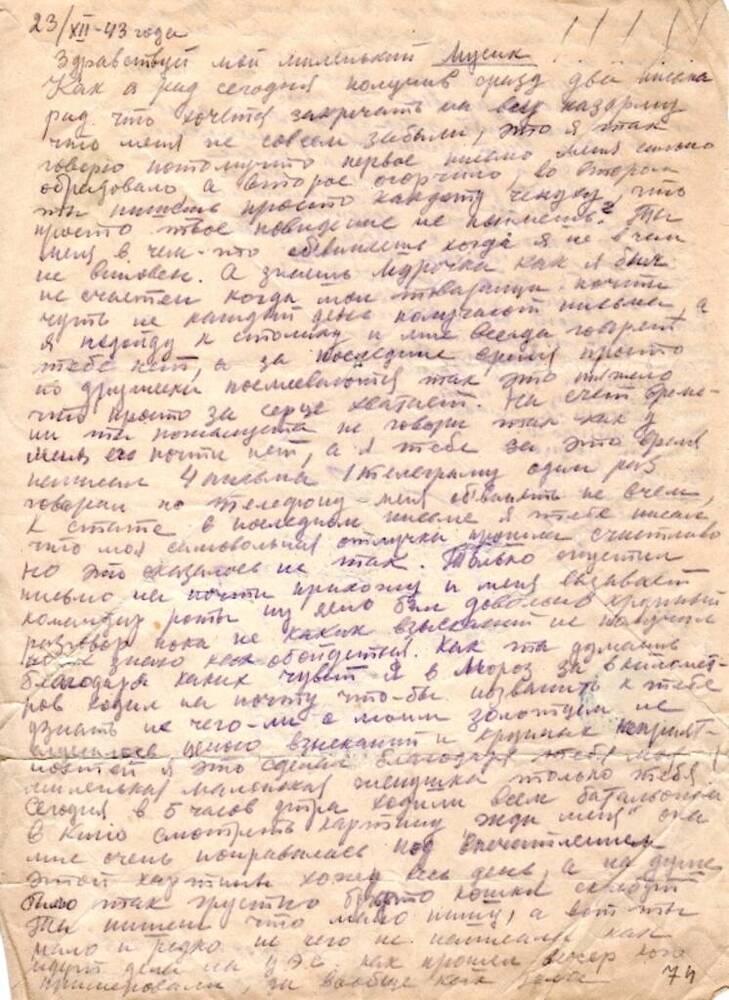 23/XII-43 года
Здравствуй мой миленький Мусик
Как я рад сегодня получив сразу два письма
рад что хочется закричать на всю казарму
что меня не совсем забыли, это я так
говорю потомучто первое письмо меня сильно
обрадовало а второе огорчило, во втором
ты пишешь просто какую-то ченуху, что
просто твое поведение не поймешь? Ты
меня в чем-то обвиняешь когда я не в чем
не виновен. А знаешь Мурочка как я был
не счастен когда мои товарищи почти
чуть не каждый день получают письма, а
я подойду к столику и мне всегда говорят
тебе нет, а за последнее время просто
по дружески посмеиваются так это тяжело
что просто за серце хватает. На счет време-
ни ты пожалуста не говори так как у
меня его почти нет, а я тебе за это время
написал 4 письма 1 телеграму один раз
говорил по телефону меня обвинять не в чем,
К стате в последнем письме я тебе писал
что моя самовольная отлучка прошла счастливо
но это оказалось не так. Только опустил
письмо на почти прихожу и меня вызывает
командир роты ну ясно был довольно крупный
разговор пока не каких взысканий не получил
не знаю как обойдется. Как ты думаешь
благодаря каких чувст я в мороз за 8 километ-
ров ходил на почту что-бы позвонить к тебе
узнать не чего-ли с моим золотцем не
случилось ценою взысканий и крупных неприят-
ностей я это сделал благодаря тебя моя
миленькая маленькая женушка только тебя
Сегодня в 5 часов утра ходили всем батальоном
в кино смотреть картину "жди меня" она
мне очень понравилась под впечатлением
этой картины хожу весь день, а на душе
было так грустно будто кошки скребут
Ты пишеш что мало пишу, а вот ты
мало и редко не чего не написала как
идут дела на ЦЭС. как прошел вечер кого
премировали, да вообще как дома
74